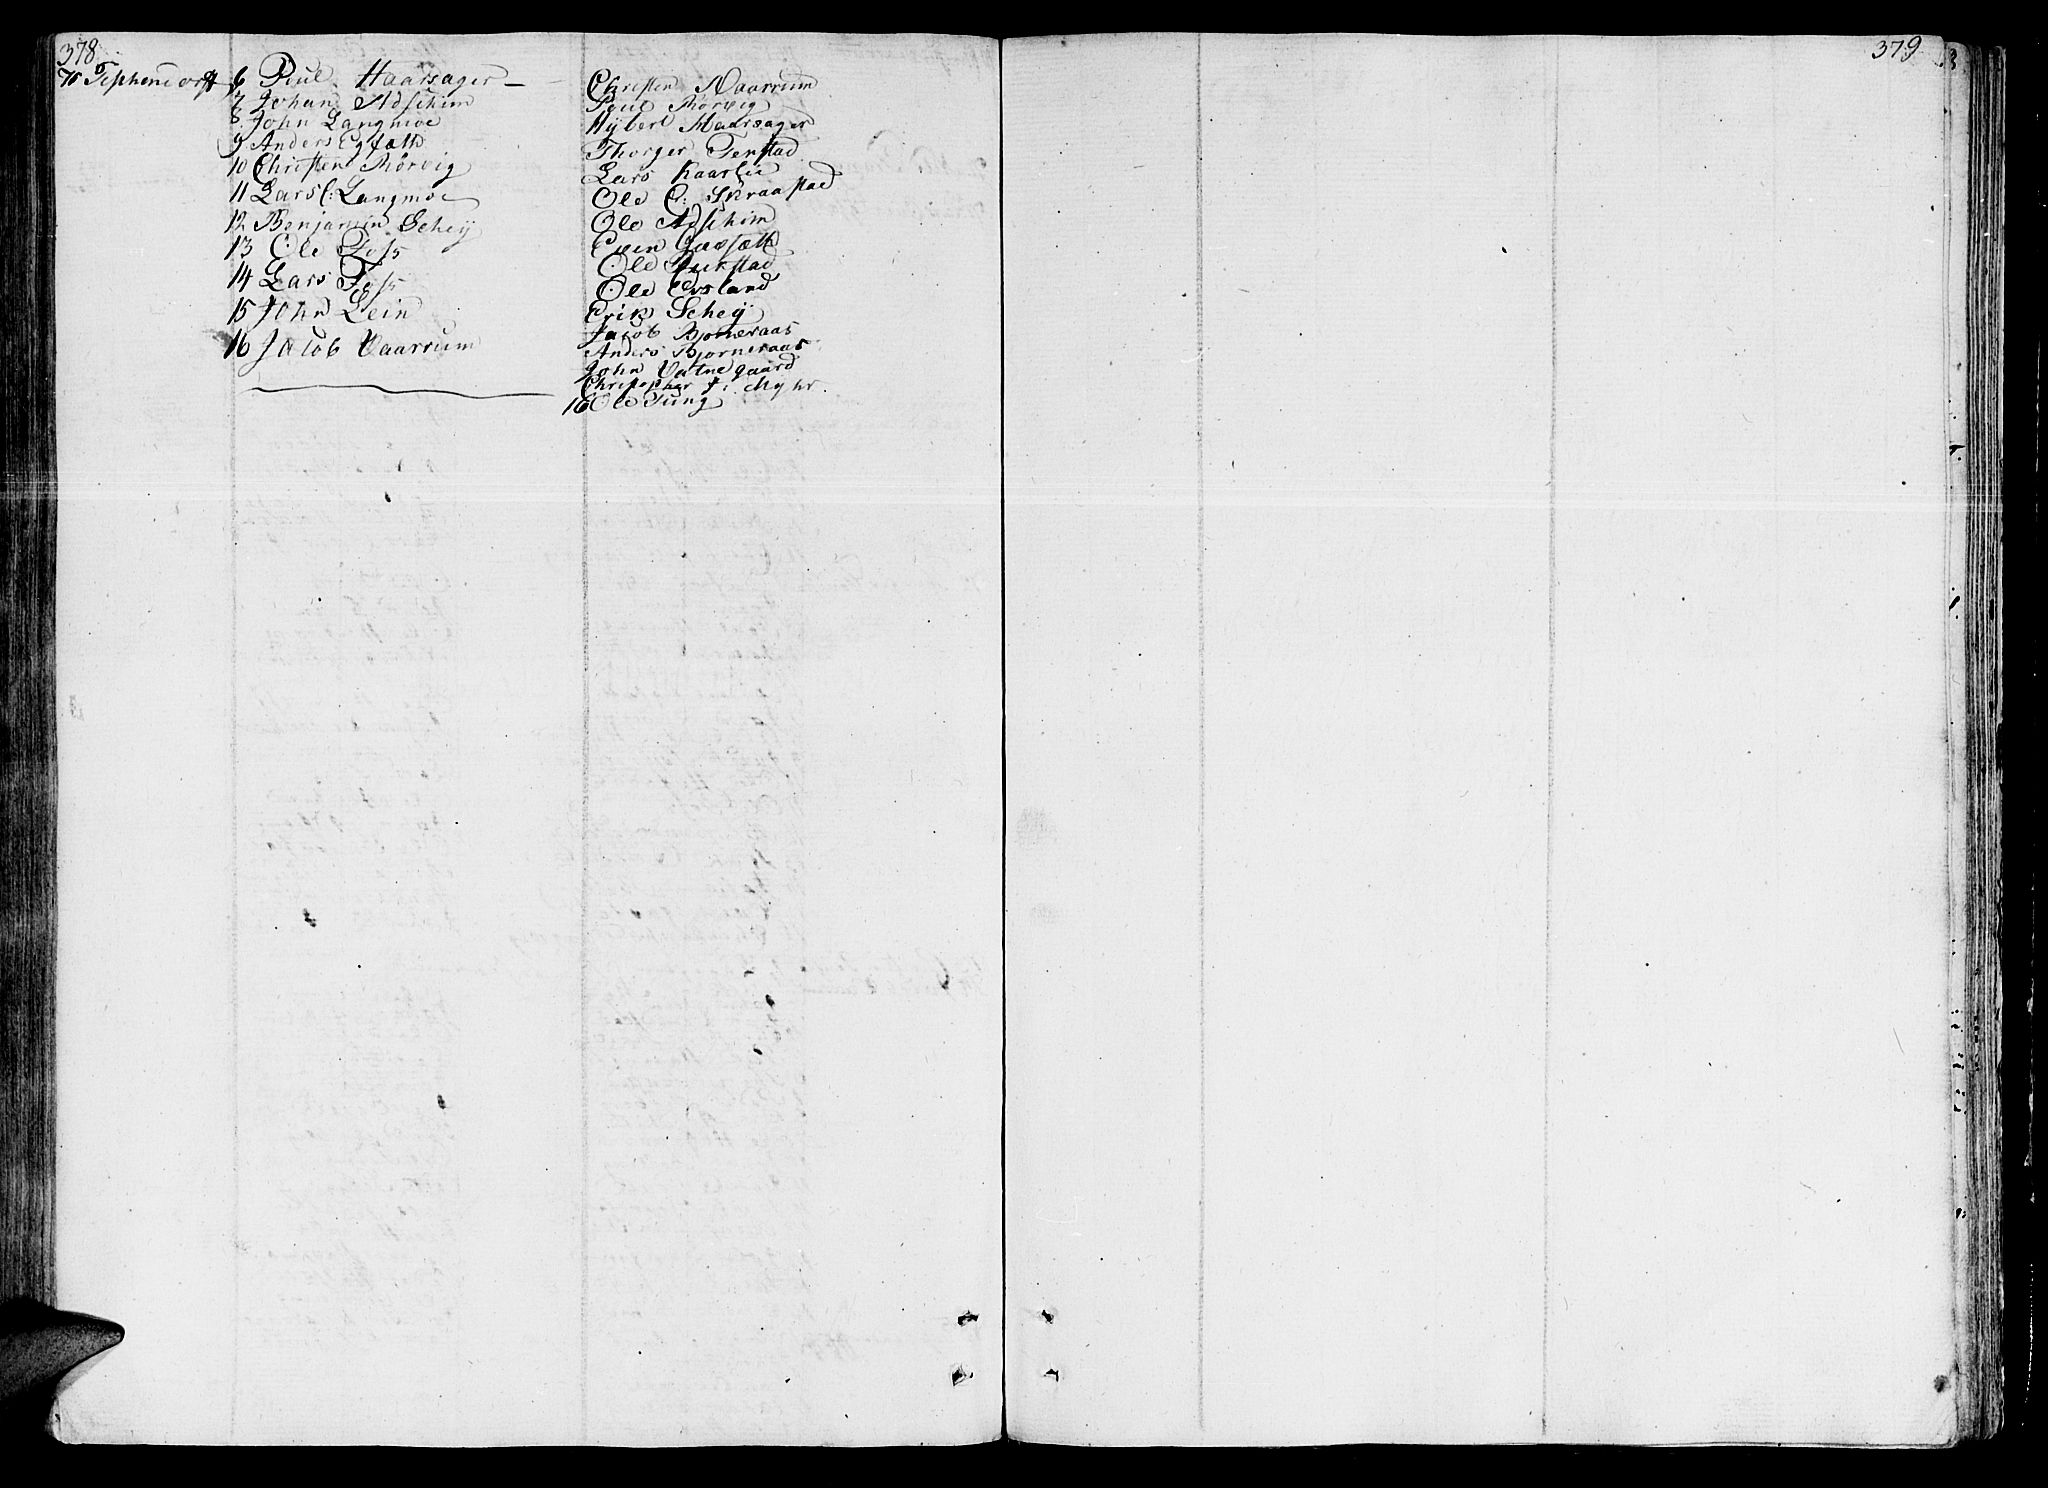 378
6 Poul Haarsager
7 Johan Adshim
8 John Langmoe
9 Anders Egsæth
10 Christen Rörvig
11 Lars C: Langmoe
12 Benjamin Scheÿ
13 Ole Foss
14 Lars Foss
15 John Lein
16 Jacob Vaarrum
Christen Naarrum
Poul Rörvig
Hÿbert Haarsager
Thorger Tenstad
Lars Kaarlie
Ole C: Skraastad
Ole Adshim
Even
Ole
Ole Evsland
Erik Scheÿ
Jacob Bjorneraas
Anders Bjorneraas
John Vatnegaard
Christopher J: Myhr
16 Ole Tung
379